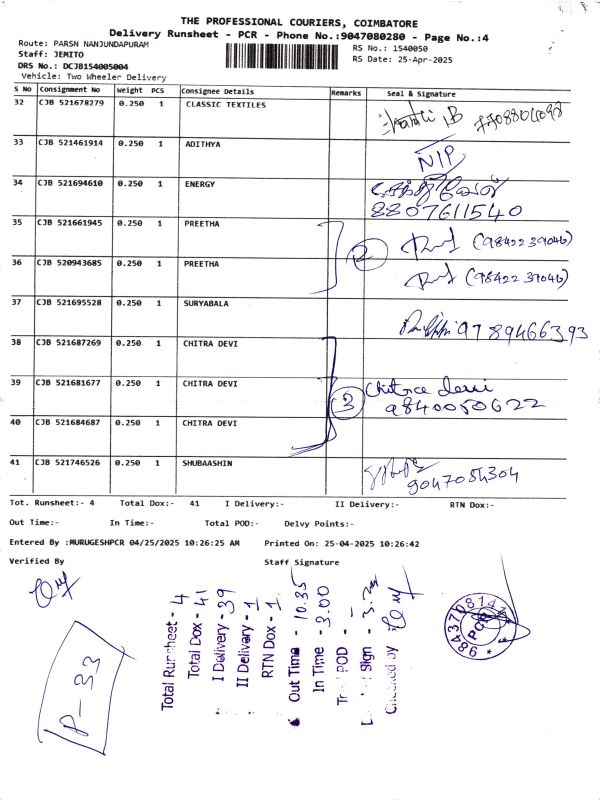 THE PROFESSIONAL COURIERS, COIMBATORE
Delivery Runsheet - PCR - Phone No.:9047080280 - Page No.:4
Route: PARSN NANJUNDAPURAM
RS No.: 1540050
Staff: JEMITO
RS Date: 25-Apr-2025
DRS No.: DCJB154005004
Vehicle: Two Wheeler Delivery
S No Consignment No Weight PCS Consignee Details Remarks Seal & Signature
32 CJB 521678279 0.250 1 CLASSIC TEXTILES
33 CJB 521461914 0.250 1 ADITHYA NIP
34 CJB 521694610 0.250 1 ENERGY
8807611540
35 CJB 521661945 0.250 1 PREETHA 2 (9842239046)
36 CJB 520943685 0.250 1 PREETHA (9842239046)
37 CJB 521695528 0.250 1 SURYABALA 9789466393
38 CJB 521687269 0.250 1 CHITRA DEVI
39 CJB 521681677 0.250 1 CHITRA DEVI 3 Chitra devi
9840050622
40 CJB 521684687 0.250 1 CHITRA DEVI
41 CJB 521746526 0.250 1 SHUBAASHIN
9047054304
Tot. Runsheet:- 4 Total Dox:- 41 I Delivery:- II Delivery:- RTN Dox:-
Out Time:- In Time:- Total POD:- Delvy Points:-
Entered By :MURUGESHPCR 04/25/2025 10:26:25 AM Printed On: 25-04-2025 10:26:42
Verified By Staff Signature
Total Runsheet - 4
Total Dox - 41
I Delivery - 39
II Delivery - 1
RTN Dox - 1
Out Time - 10.35
In Time - 3.00
POD -
Sign -
Checked by
P-33
PCR